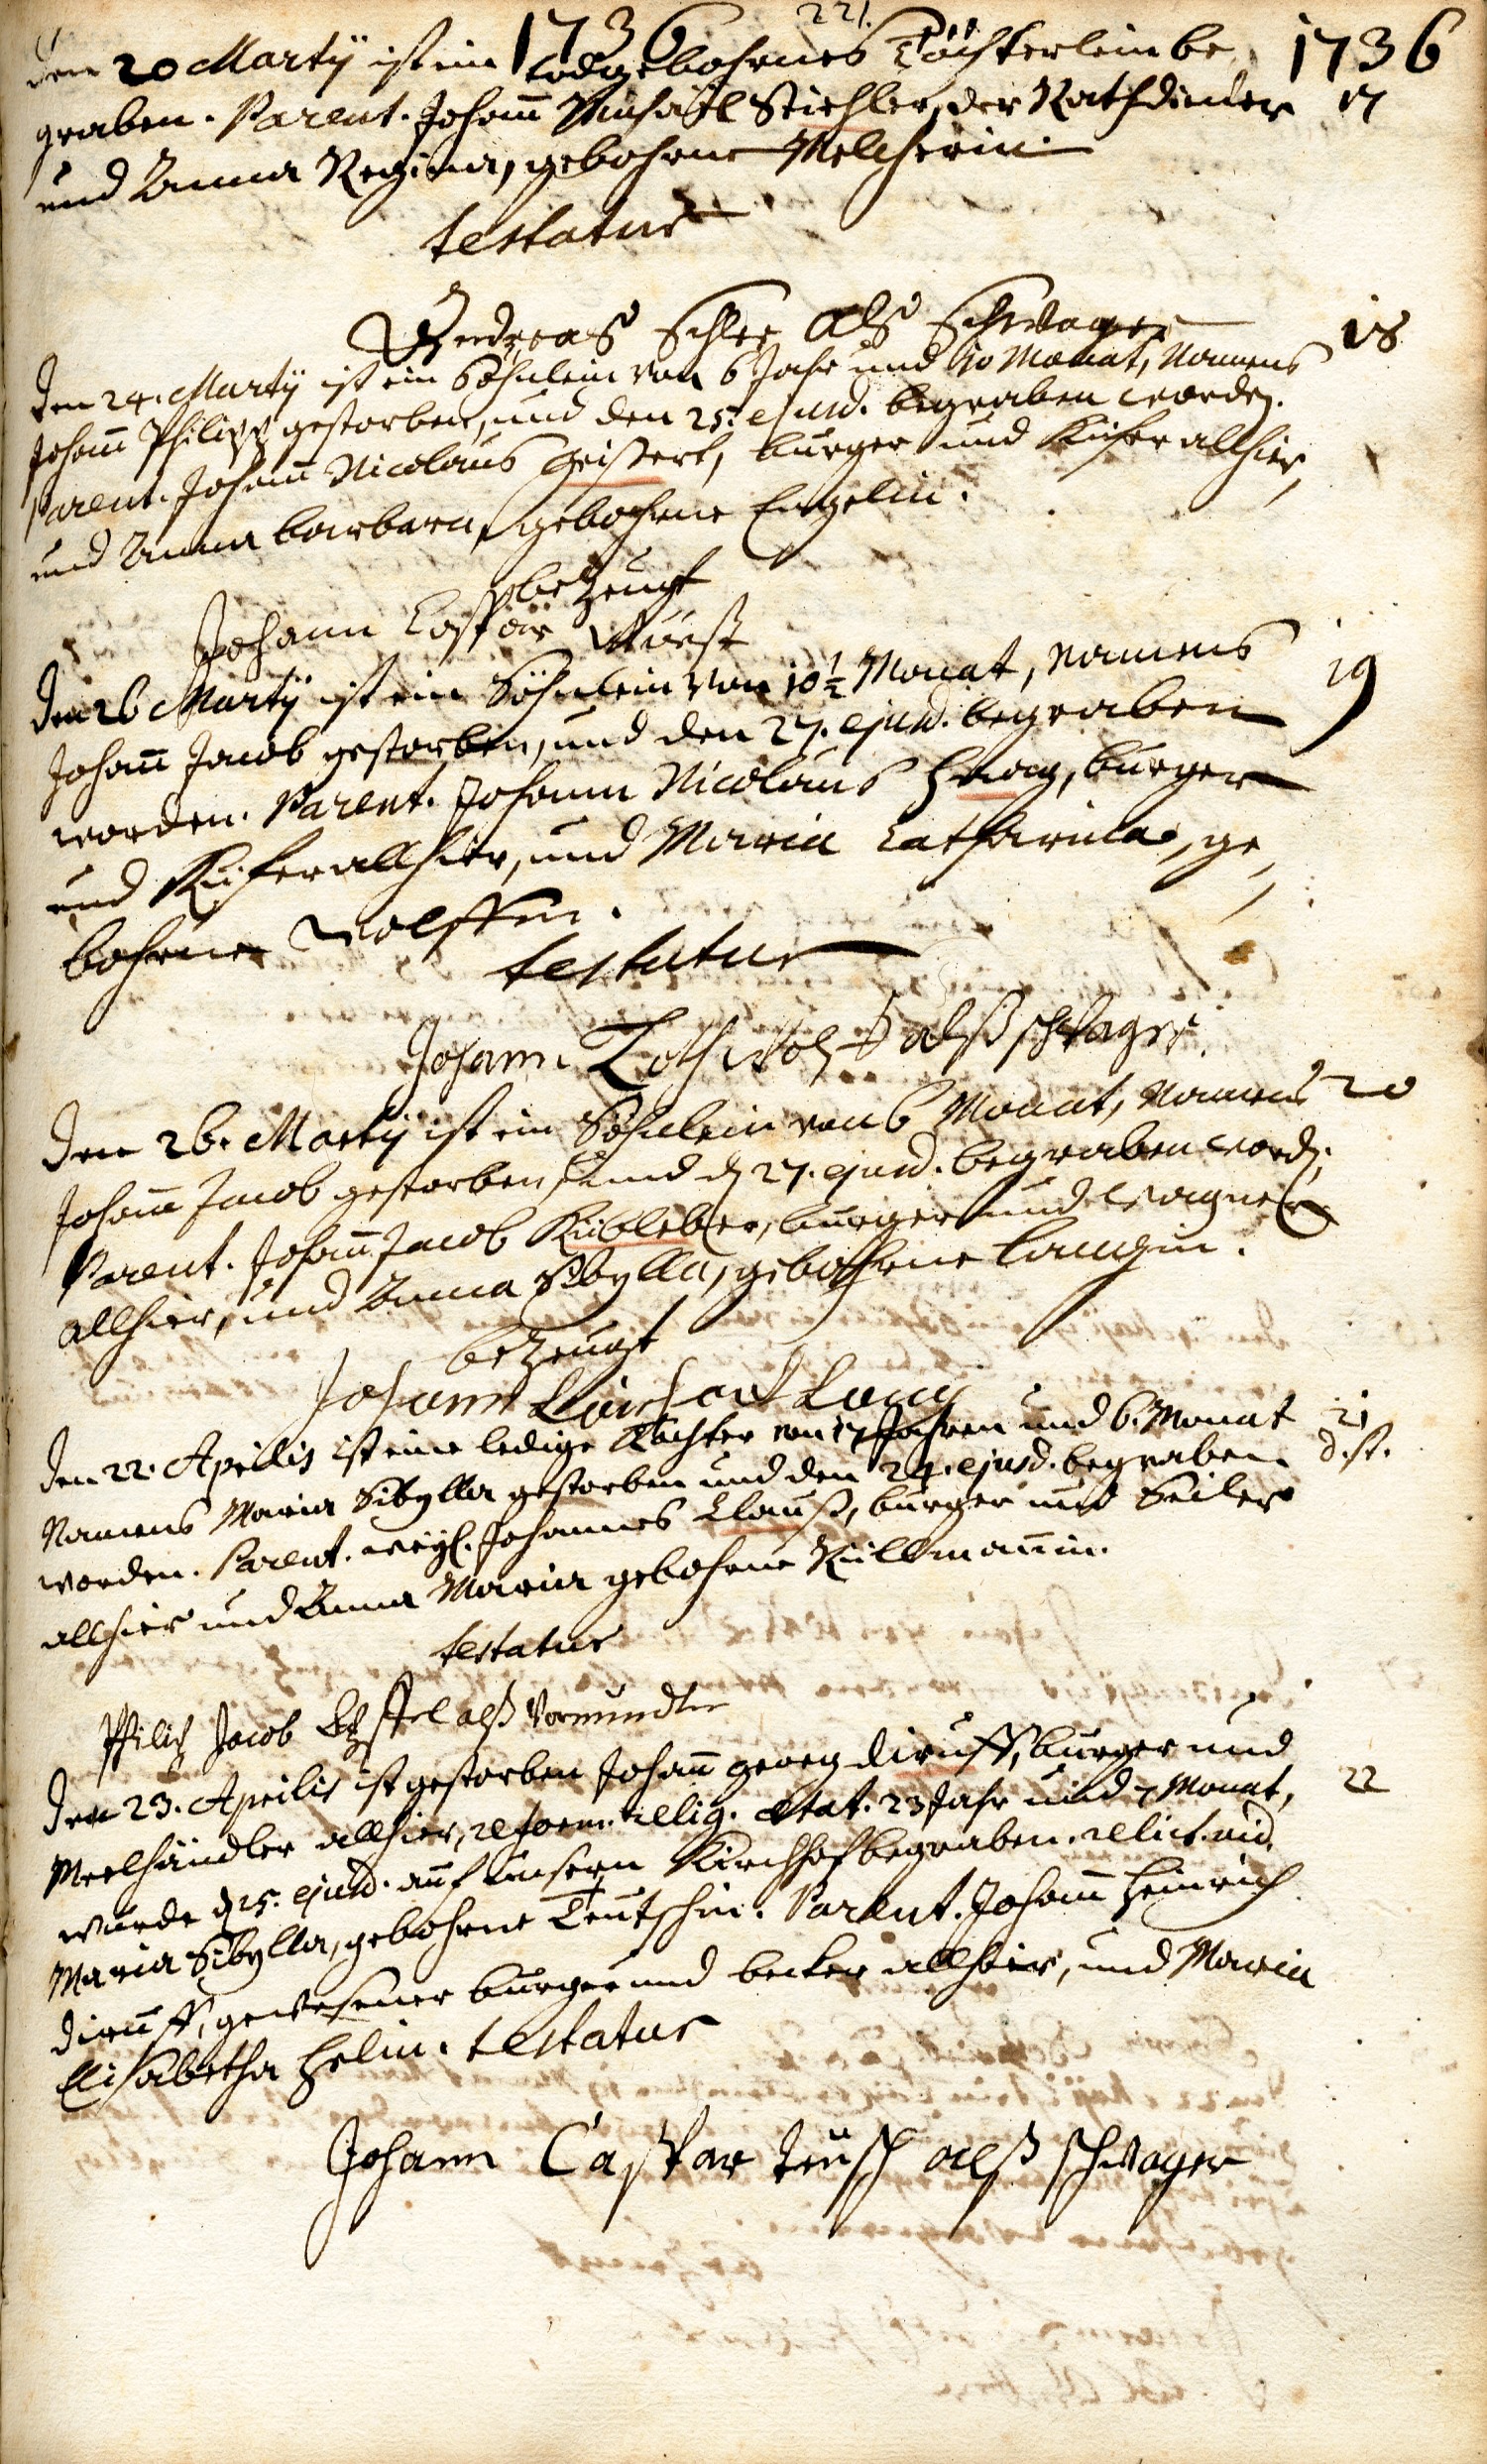 221.
1736 1736
den 20 Martÿ ist ein todgebohrnes Töchterlein be
graben. Parent. Johañ Michäel Stiehler, der Rathsdiener 17
und Anna Regina, gebohrne Melcherin.
testatur
Andreas Schler Als Schwager
den 24. Martÿ ist ein Söhnlein von 6 Jahr und 10 Monat, Namens 18
Johañ Philipp gestorben, und den 25. ejusd. begraben worden.
Parent. Johañ Nicolaus Geissert, burger und Küfer allhier,
und Anna barbara, gebohrne Engelin.
bezeugt
Johann Casspar Wurst
den 26 Martÿ ist ein Söhnlein von 10½ Monat, namens 19
Johañ Jacob gestorben, und den 27. ejusd. begraben
worden. Parent. Johann Nicolaus Haag, burger
und Küfer allhier, und Maria Catharina, ge
bohrne Wolffin.
testatur
Johann alß schwager.
den 26. Martÿ ist ein Söhnlein von 6 Monat, Namens 20
Johañ Jacob gestorben, und d. 27. ejusd. begraben word.
Parent. Johañ Jacob Kübleber, burger und Wagner
allhier, und Anna Sibylla, gebohrne Langin.
bezeugt
Johann Lang
den 22. Aprillis ist eine ledige Tochter von 17 Jahren und 6. Monat 21
Namens Maria Sibylla gestorben und den 24. ejusd. begraben d. st.
worden. Parent. weyl. Johannes Clauß, burger und Seiler
allhier und Anna Maria gebohrne Küllmañin.
testatur
Philip Jacob alß Vormundter
den 23. Aprilis ist gestorben Johañ georg diruff, burger und
Meelhändler allhier, reform. relig. ætat. 23 Jahr und 7 Monat, 22
wurde d. 25. ejusd. auf unsern Kirchhof begraben. relict. vid.
Maria Sibylla, gebohrne Teutschin. Parent. Johañ Heinrich
diruff, gewesener burger und becker allhier, und Maria
Elisabetha Helin. testatur
Johann Casspar Teusch alß schwager